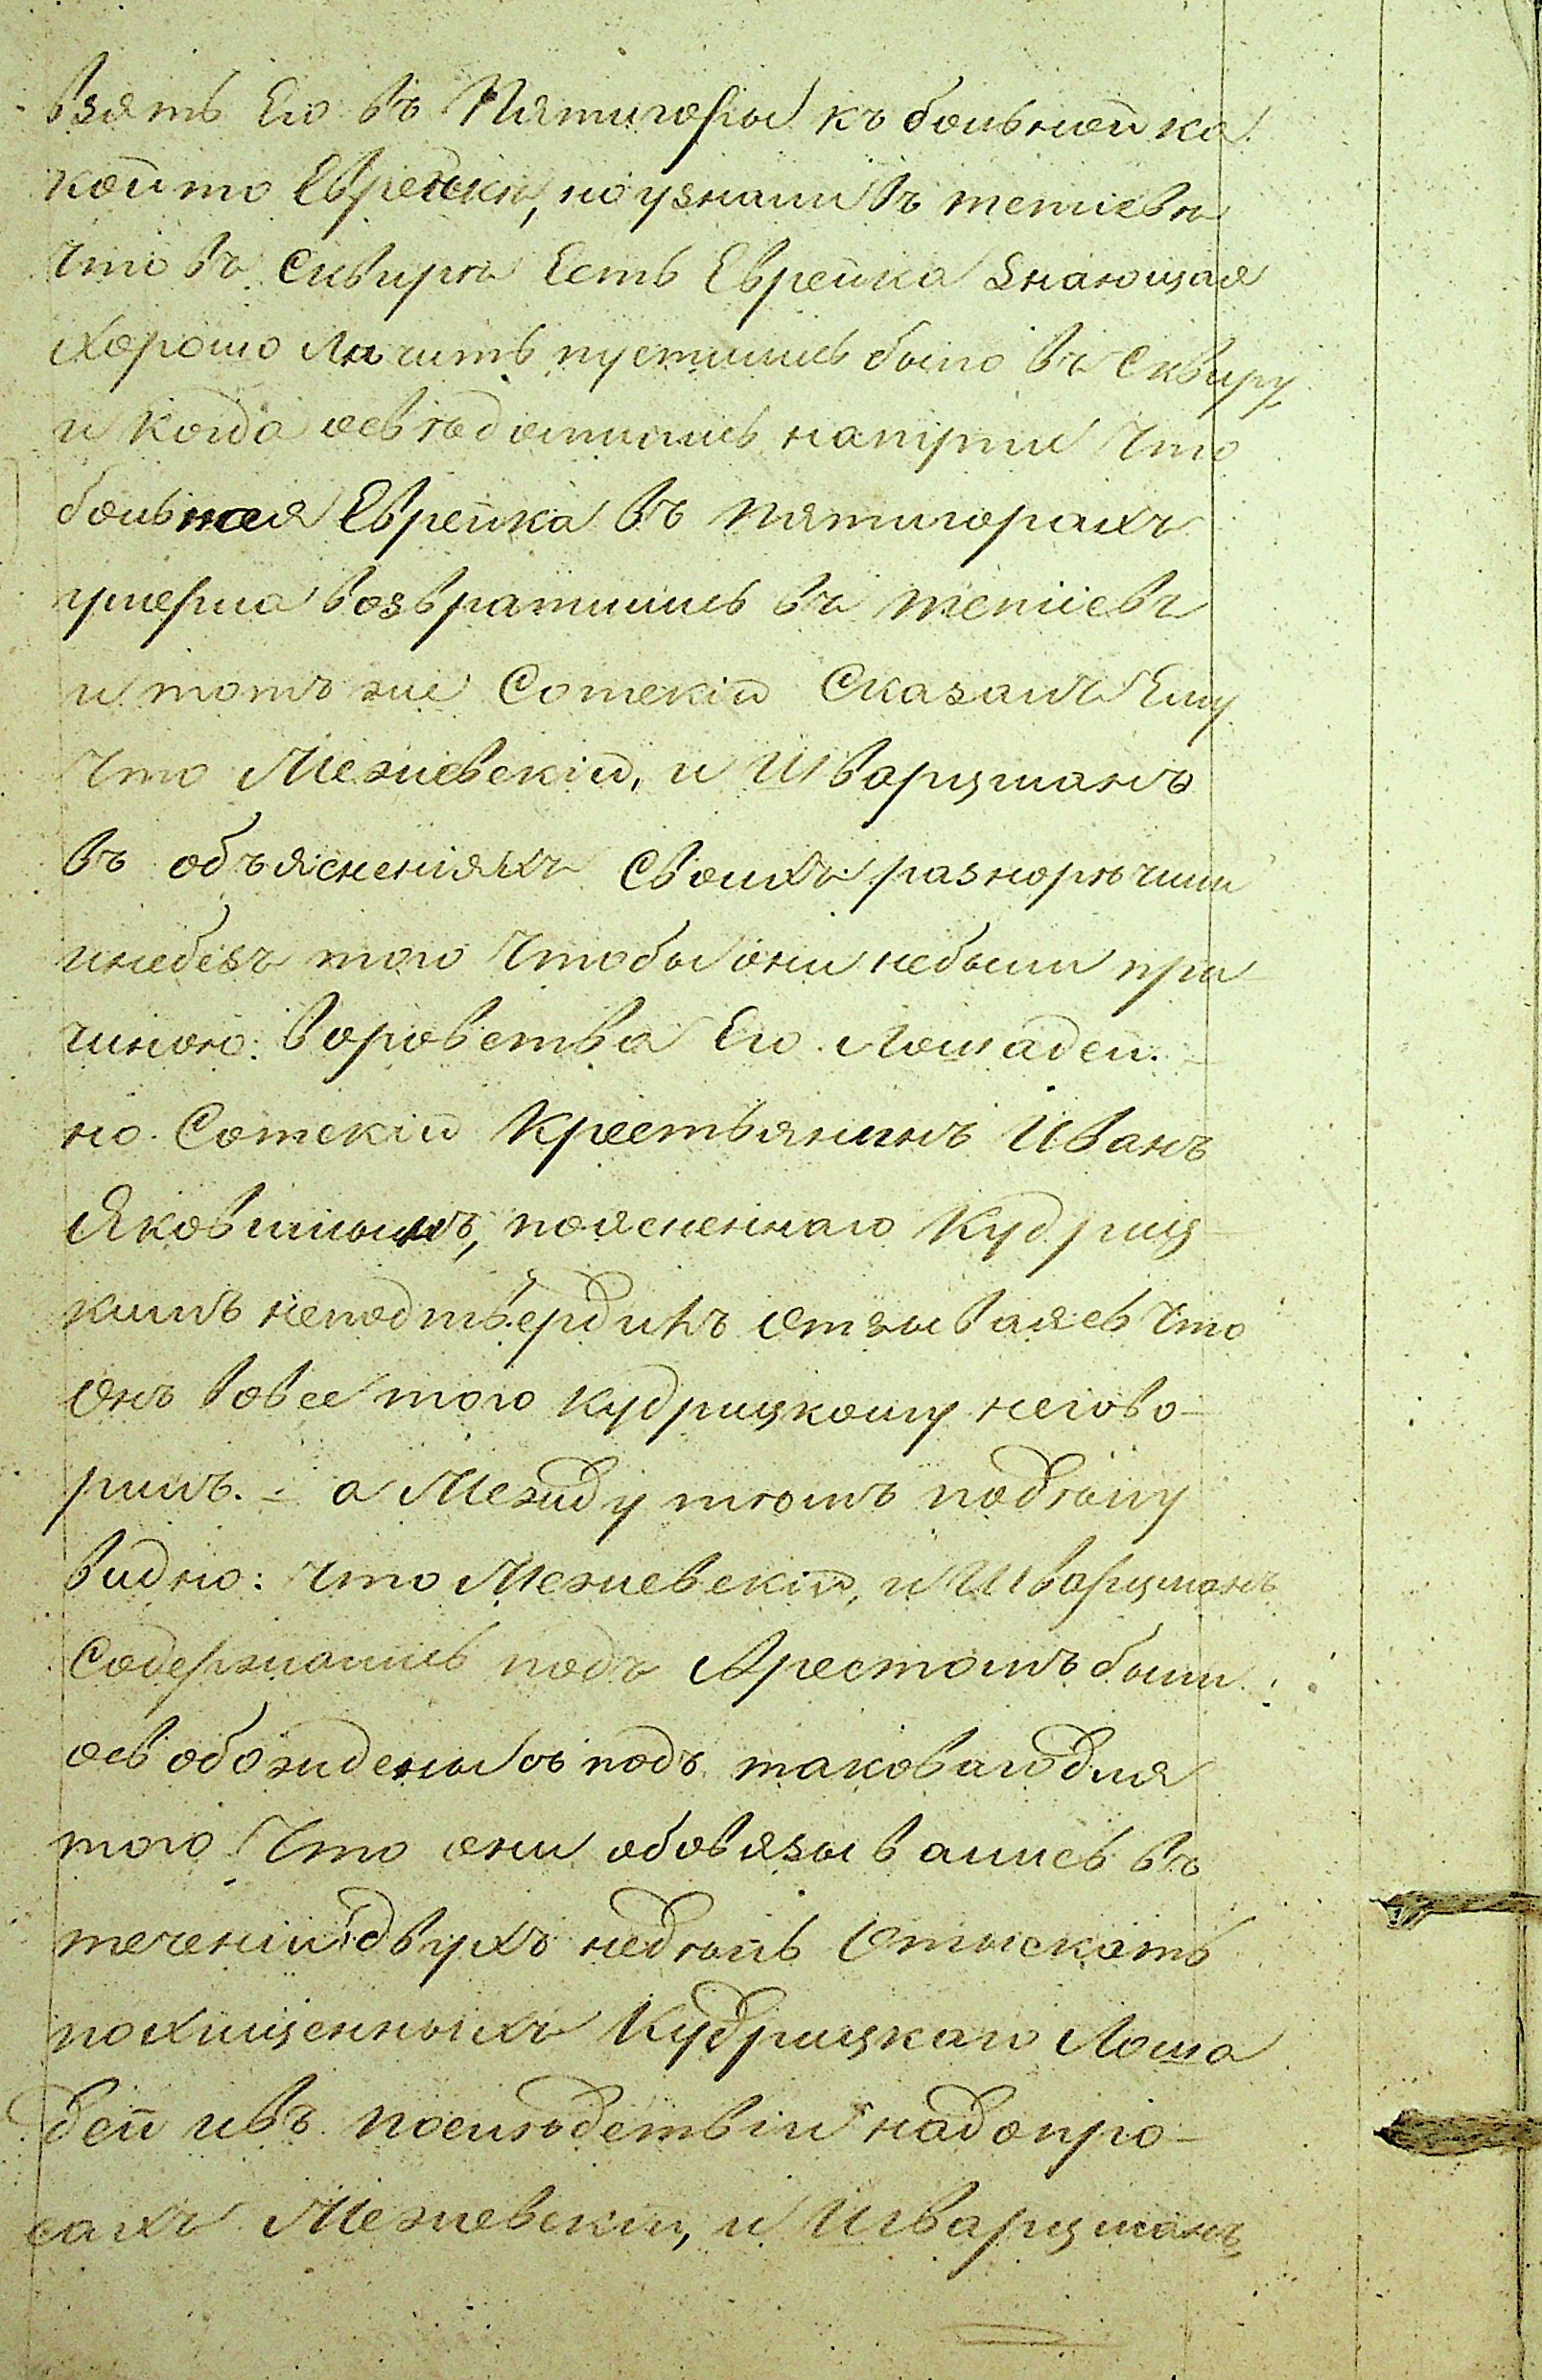 взять Его въ Пятигоры къ больной ка
кой то Еврейки, но узнали въ тетіевѣ
что въ Сквирѣ Есть Еврейка знающая
хорошо лѣчить пустились было въ Сквиру
и когда освѣдомились напути что
больная Еврейка въ пятигорахъ
умерла возвратились въ тетіевъ
и тотъ же Сотскій Сказалъ Ему
что Межіевскій, и Шварцманъ
въ объясненіяхъ Своихъ разнорѣчили
инебезъ того чтобы они небыли при
чиною воровства Его Лошадей.
но Сотскій Крестьянинъ Иванъ
поясненнаго Кудриц-
кимъ неподтвердилъ отзываясь что
онъ вовсе того Кудрицкому негово-
рилъ. - а Между тѣмъ подѣлу
видно: что Межіевскій, и Шварцманъ
Содержались подъ Арестомъ были
освобождены съ подъ таковаго для
того что они обовязывались въ
теченіи двухъ недѣль Отыскать
похищенныхъ Кудрицкаго Лоша
дей ивъ послѣдствіи надопро-
сахъ Межіевскій, и Шварцманъ